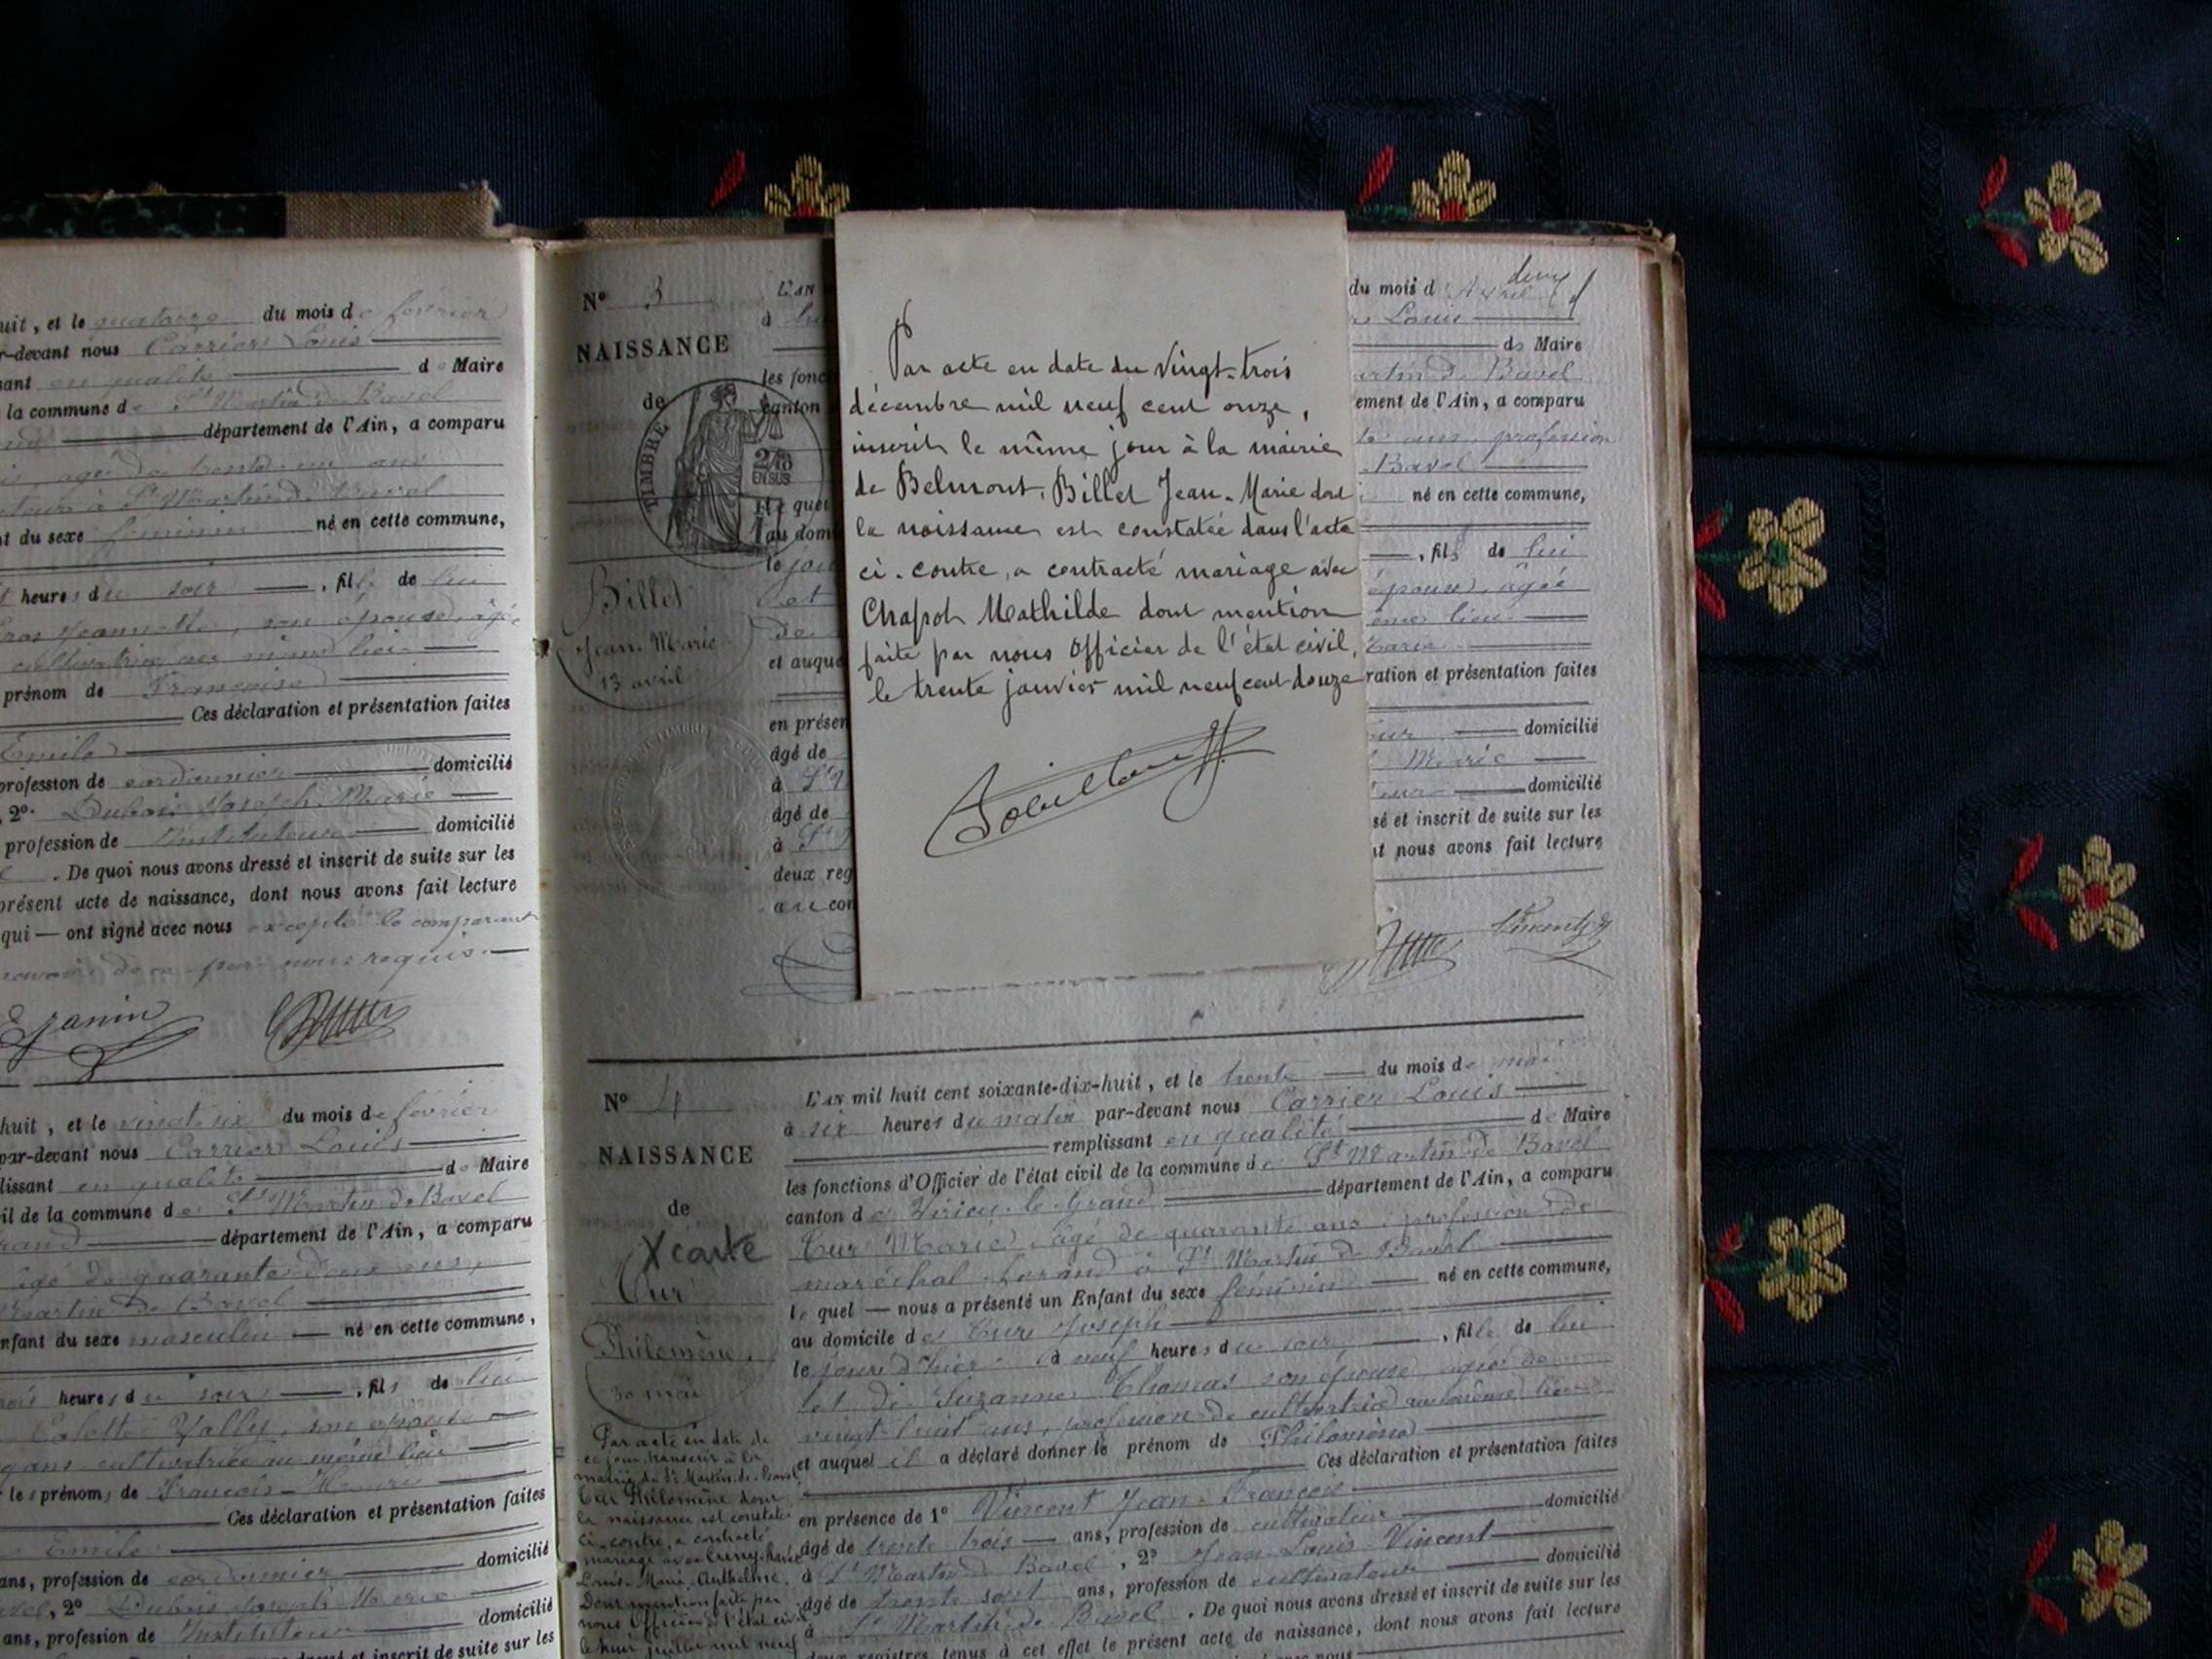 uit, et le quatorze du mois de février
r-devant nous Carrier Louis
sant en qualité de Maire
la commune de St Martin de Bavel
département de l'Ain, a comparu
agé de trente un ans
à St Martin de Bavel
t du sexe féminin né en cette commune,
heures du soir, fille de lui
Jeannette, son épouse, âgée
cultivatrice au même lieu
prénom de Françoise
Ces déclaration et présentation faites
Emile
profession de cordonnier domicilié
, 2° Dubois Joseph Marie
profession de Instituteur domicilié
. De quoi nous avons dressé et inscrit de suite sur les
présent acte de naissance, dont nous avons fait lecture
qui — ont signé avec nous excepté le comparant
de ce par nous requis.
Janin
huit, et le vingt six du mois de février
par-devant nous Carrier Louis
lissant en qualité de Maire
il de la commune de St Martin de Bavel
département de l'Ain, a comparu
âgé de quarante deux ans,
Martin de Bavel
nfant du sexe masculin né en cette commune,
heures du soir, fils de lui
Colette Vally, son épouse
ans cultivatrice au même lieu
les prénoms de François-
Ces déclaration et présentation faites
Emile
ans, profession de cordonnier domicilié
, 2° Dubois Joseph Marie
ans, profession de Instituteur domicilié
et inscrit de suite sur les
N° 3
NAISSANCE
de
TIMBRE
2/10
EN SUS
Billet
Jean Marie
13 avril
L'AN
à
les fonc
canton
le quel
au dom
le jou
et
de
et auque
en présen
âgé de
à St
âgé de
à St
deux reg
au con
Par acte en date du vingt-trois
décembre mil neuf cent onze,
inscrit le même jour à la mairie
de Belmont, Billet Jean-Marie dont
la naissance est constatée dans l'acte
ci-contre, a contracté mariage avec
Chapot Mathilde dont mention
faite par nous Officier de l'état civil,
le trente janvier mil neuf cent douze
du mois d'Avril
Louis
de Maire
artin de Bavel
ement de l'Ain, a comparu
ans, profession
Bavel
né en cette commune,
, fils de lui
épouse, âgée
même lieu
Marie
ration et présentation faites
domicilié
Marie
domicilié
sé et inscrit de suite sur les
t nous avons fait lecture
N° 4
NAISSANCE
de
X carte
Cur
Philomène
30 mai
Par acte en date de
ce jour, transcrit à la
mairie de St Martin-de-Bavel
Cur Philomène dont
la naissance est constatée
ci-contre, a contracté
mariage avec
Louis-Marie, Anthelme.
Dont mention faite par
nous Officier de l'état civil
le huit juillet mil neuf
L'AN mil huit cent soixante-dix-huit, et le trente du mois de mai
à six heures du matin par-devant nous Carrier Louis
remplissant en qualité de Maire
les fonctions d'Officier de l'état civil de la commune de St Martin de Bavel
canton de Virieu-le-Grand département de l'Ain, a comparu
Cur Marie, âgé de quarante ans, profession de
maréchal ferrand à St Martin de Bavel
le quel — nous a présenté un Enfant du sexe féminin né en cette commune,
au domicile de Cur Joseph
le jour d'hier à neuf heures du soir, fille de lui
et de Suzanne Thomas son épouse âgée de
vingt huit ans, profession de cultivatrice au même lieu
et auquel il a déclaré donner le prénom de Philomène
Ces déclaration et présentation faites
en présence de 1° Vincent Jean François
âgé de trente trois ans, profession de cultivateur domicilié
à St Martin de Bavel, 2° Jean Louis Vincent
âgé de trente sept ans, profession de cultivateur domicilié
à St Martin de Bavel. De quoi nous avons dressé et inscrit de suite sur les
deux registres tenus à cet effet le présent acte de naissance, dont nous avons fait lecture